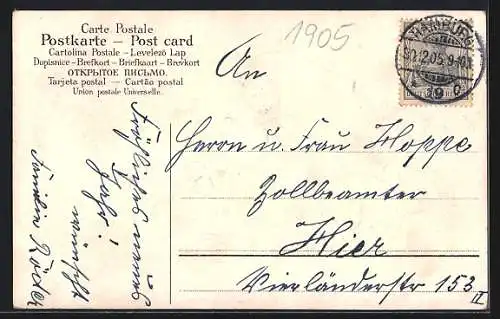 Carte Postale
Postkarte — Post card
Cartolina Postale – Levelező Lap
Dopisnice – Brefkort – Briefkaart – Brevkort
ОТКРЫТОЕ ПИСЬМО.
Tarjeta postal — Cartão postal
Union postale Universelle.
1905
HAMBURG
31.12.05.9-10
An
Herrn u. Frau Hoppe
Zollbeamter
Hier
Vierländerstr 153 II
Fröhliches neues
Jahr!
wünscht
Familie